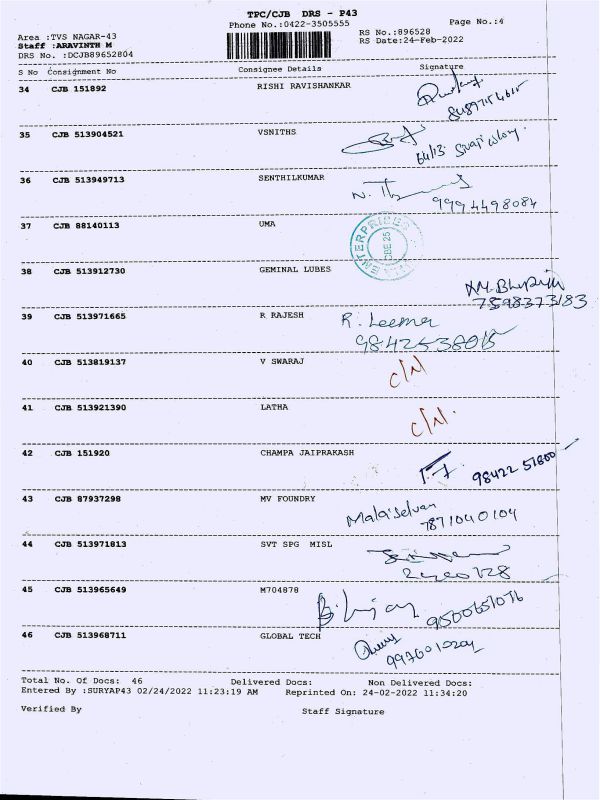 TPC/CJB DRS - P43
Phone No.:0422-3505555
Page No.:4
Area :TVS NAGAR-43
RS No.:896528
Staff :ARAVINTH M
RS Date:24-Feb-2022
DRS No. :DCJB89652804
S No Consignment No Consignee Details Signature
34 CJB 151892 RISHI RAVISHANKAR
35 CJB 513904521 VSNITHS
64/13
36 CJB 513949713 SENTHILKUMAR
9994498084
37 CJB 88140113 UMA
ENTERPRISES
38 CJB 513912730 GEMINAL LUBES
7598373183
39 CJB 513971665 R RAJESH R. Leema
40 CJB 513819137 V SWARAJ
41 CJB 513921390 LATHA
42 CJB 151920 CHAMPA JAIPRAKASH
98422 51800
43 CJB 87937298 MV FOUNDRY Malaiselvan
7871040104
44 CJB 513971813 SVT SPG MISL
45 CJB 513965649 M704878
9500651076
46 CJB 513968711 GLOBAL TECH
Total No. Of Docs: 46 Delivered Docs: Non Delivered Docs:
Entered By :SURYAP43 02/24/2022 11:23:19 AM Reprinted On: 24-02-2022 11:34:20
Verified By Staff Signature